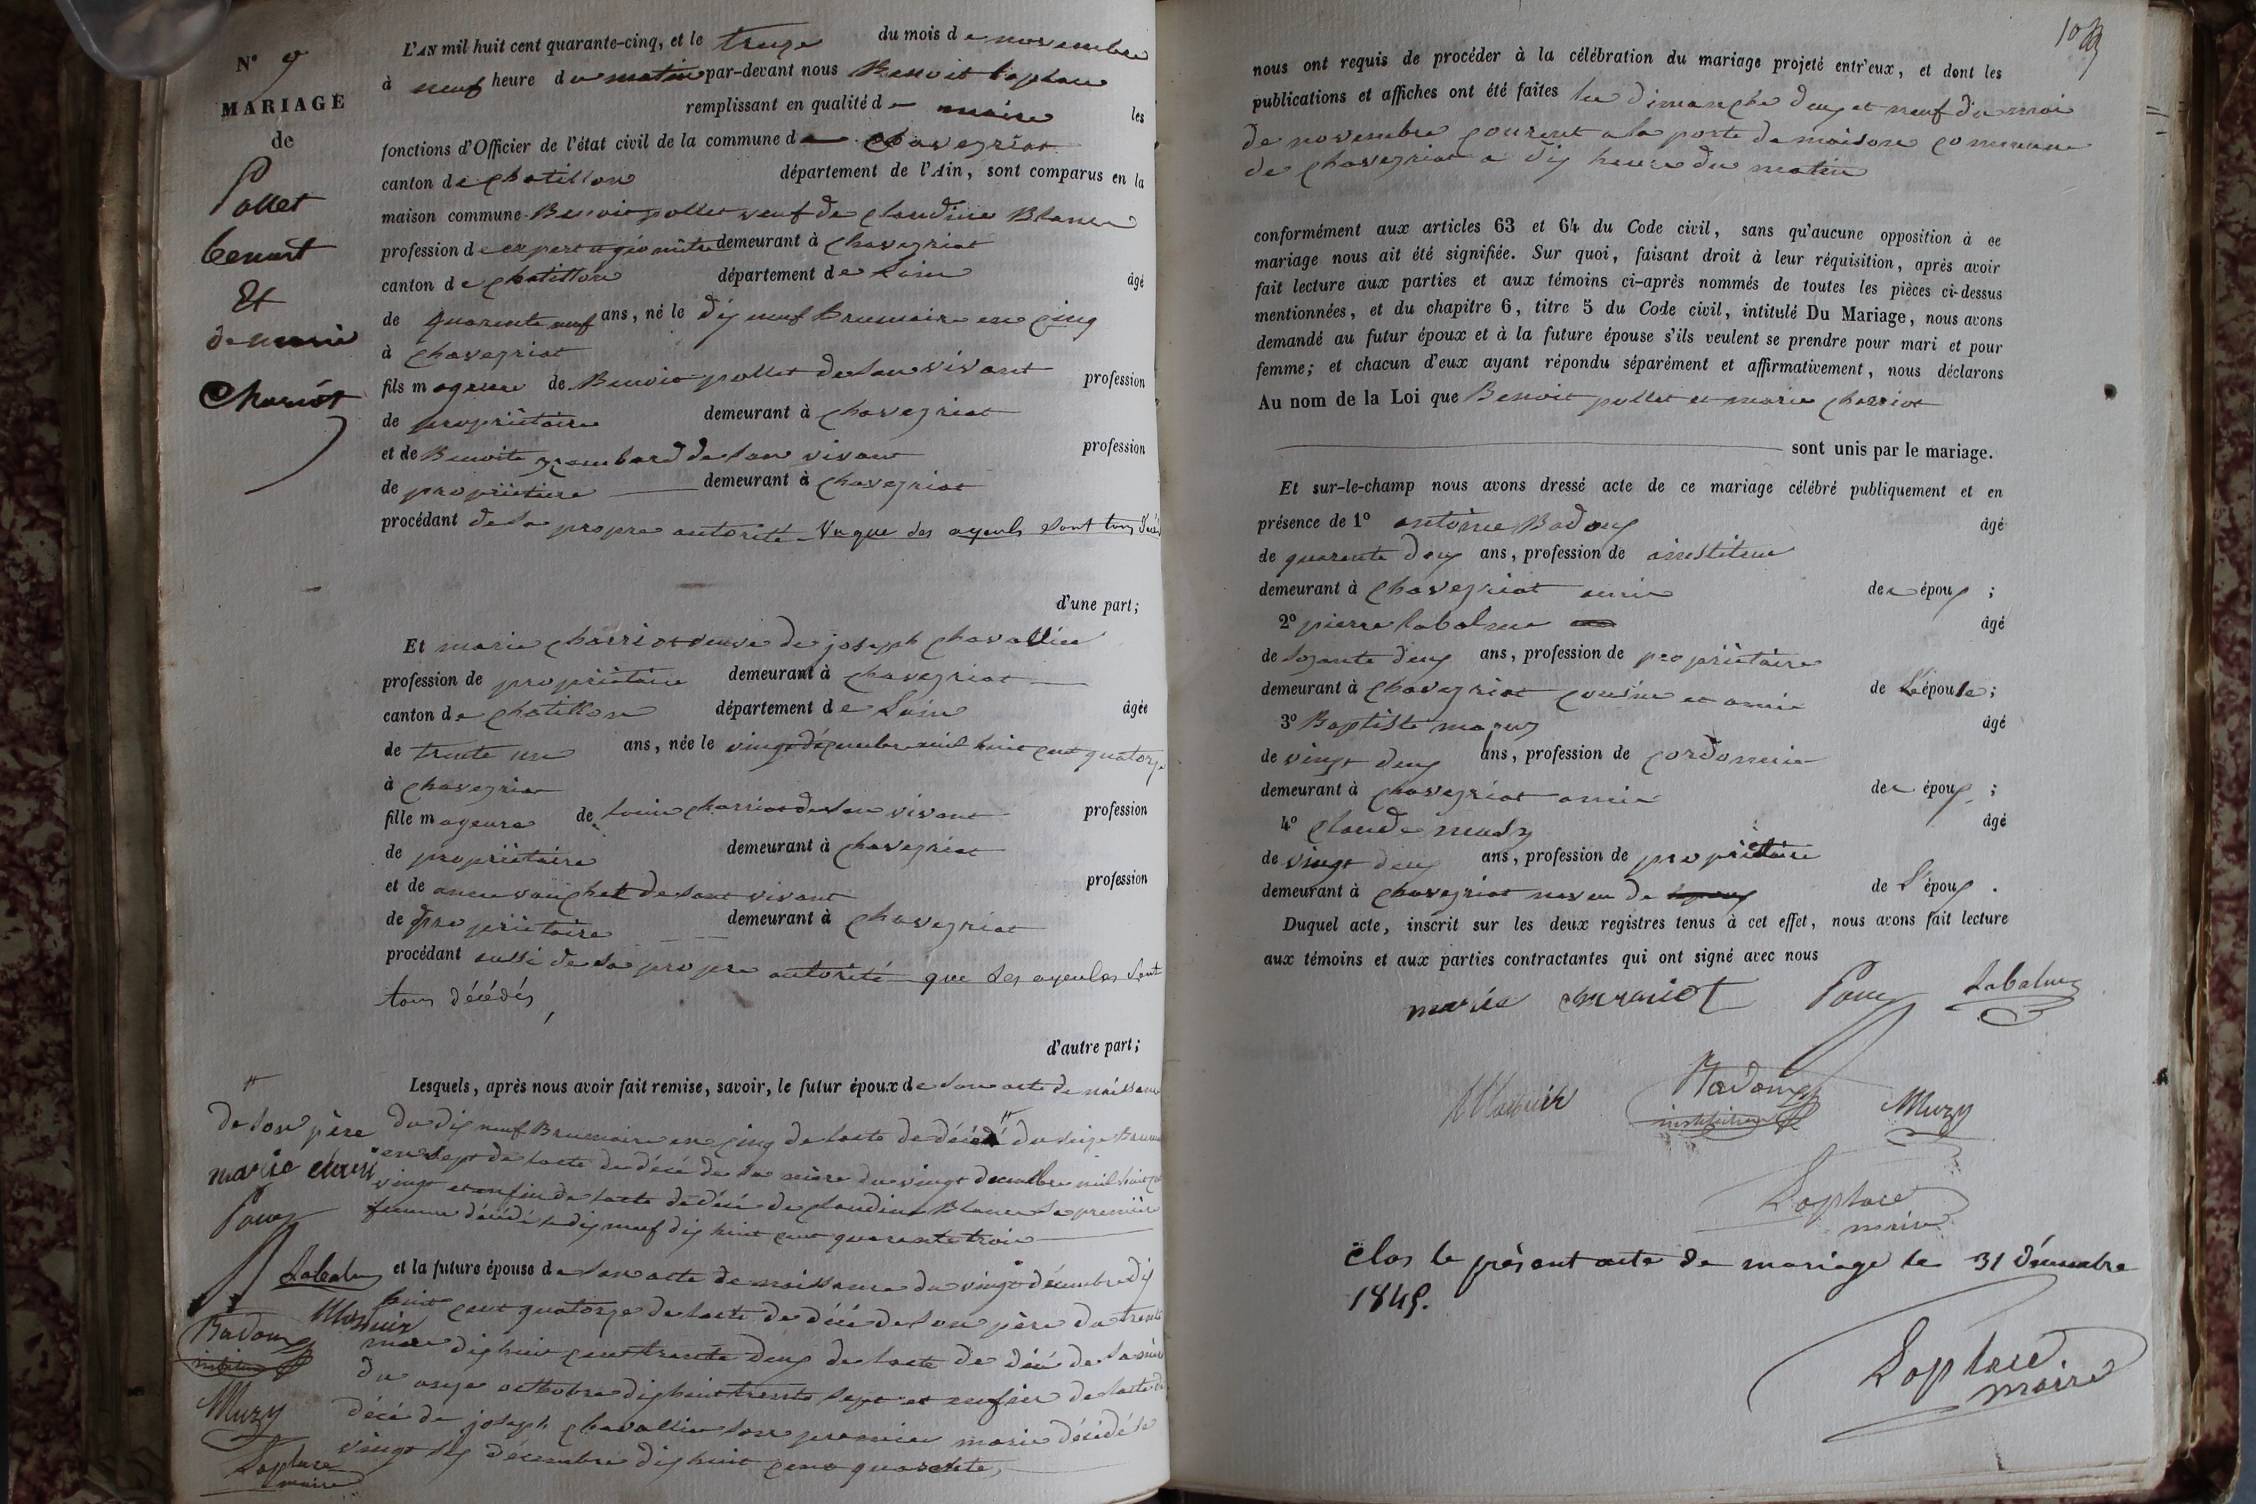 N° 9
MARIAGE
de
Pollet
benoit
Et
de marie
Charriot
L'AN mil huit cent quarante-cinq, et le treize du mois de novembre
à neuf heure du matin par-devant nous Benoit Laplace
remplissant en qualité de maire les
fonctions d'Officier de l'état civil de la commune de chaveyriat
canton de chatillon département de l'Ain, sont comparus en la
maison commune Benoit pollet veuf de Claudine Blanc
profession de expert géomètre demeurant à Chaveyriat
canton de chatillon département de Lain âgé
de quarente neuf ans, né le dix neuf brumaire en cinq
à chaveyriat
fils mageur de Benoit pollet de son vivant profession
de propriètaire demeurant à chaveyriat
et de Benoite de son vivant profession
de propriètaire demeurant à chaveyriat
procédant de sa propre autorité vu que ses ayeuls sont tous
d'une part;
Et marie charriot veuve de joseph chavallier
profession de propriètaire demeurant à chaveyriat
canton de chatillon département de Lain âgée
de trente un ans, née le vingt décembre mil huit cent quatorze
à chaveyriat
fille mageure de Louis charriot de son vivant profession
de propriètaire demeurant à chaveyriat
et de de sont vivant profession
de propriètaire demeurant à chaveyriat
procédant aussi de sa propre autorité que ses ayeules sont
tous décédés,
d'autre part;
Lesquels, après nous avoir fait remise, savoir, le futur époux de son acte de naissance
du dix neuf Brumaire en cinq de lacte de décé du seize
en sept de lacte de décé de sa mère du vingt decembre mil huit
vingt et enfin de lacte de décé de Claudine Blanc sa première
femme décédé le dix neuf dix huit cent quarente trois
de son père
marie
et la future épouse de son acte de naissance du vingt décembre dix
huit cent quatorze de lacte de décé de son père du trente
mai dix huit cent trente deux de lacte de décé de sa mère
du onze octobre dix huit trente sept et enfin de lacte de
décé de joseph chavallier son premier marie décédé le
vingt six décembre dix huit cent quarente,
Labalme
Badoux
instituteur
Muzy
Laplace
maire
nous ont requis de procéder à la célébration du mariage projeté entr'eux, et dont les
publications et affiches ont été faites les dimanche deux et neuf du moi
de novembre courent a la porte de maison commune
de chaveyriat a dix heure du matin
conformément aux articles 63 et 64 du Code civil, sans qu'aucune opposition à ce
mariage nous ait été signifiée. Sur quoi, faisant droit à leur réquisition, après avoir
fait lecture aux parties et aux témoins ci-après nommés de toutes les pièces ci-dessus
mentionnées, et du chapitre 6, titre 5 du Code civil, intitulé Du Mariage, nous avons
demandé au futur époux et à la future épouse s'ils veulent se prendre pour mari et pour
femme; et chacun d'eux ayant répondu séparément et affirmativement, nous déclarons
Au nom de la Loi que Benoit pollet et marie charriot
sont unis par le mariage.
Et sur-le-champ nous avons dressé acte de ce mariage célébré publiquement et en
présence de 1° antoine Badoux âgé
de quarente deux ans, profession de
demeurant à chaveyriat amie de époux ;
2° pierre labalme âgé
de sozante deux ans, profession de propriètaire
demeurant à chaveyriat cousin et amie de L'épouse;
3° Baptiste âgé
de vingt deux ans, profession de cordonnier
demeurant à chaveyriat amie de époux ;
4° claude muzy âgé
de vingt deux ans, profession de propriètaire
demeurant à chaveyriat neveu de de L'époux .
Duquel acte, inscrit sur les deux registres tenus à cet effet, nous avons fait lecture
aux témoins et aux parties contractantes qui ont signé avec nous
marie charriot Labalme
Badoux
instituteur
Muzy
Laplace
maire
clos le présent acte de mariage le 31 décembre
1845.
Laplace
maire